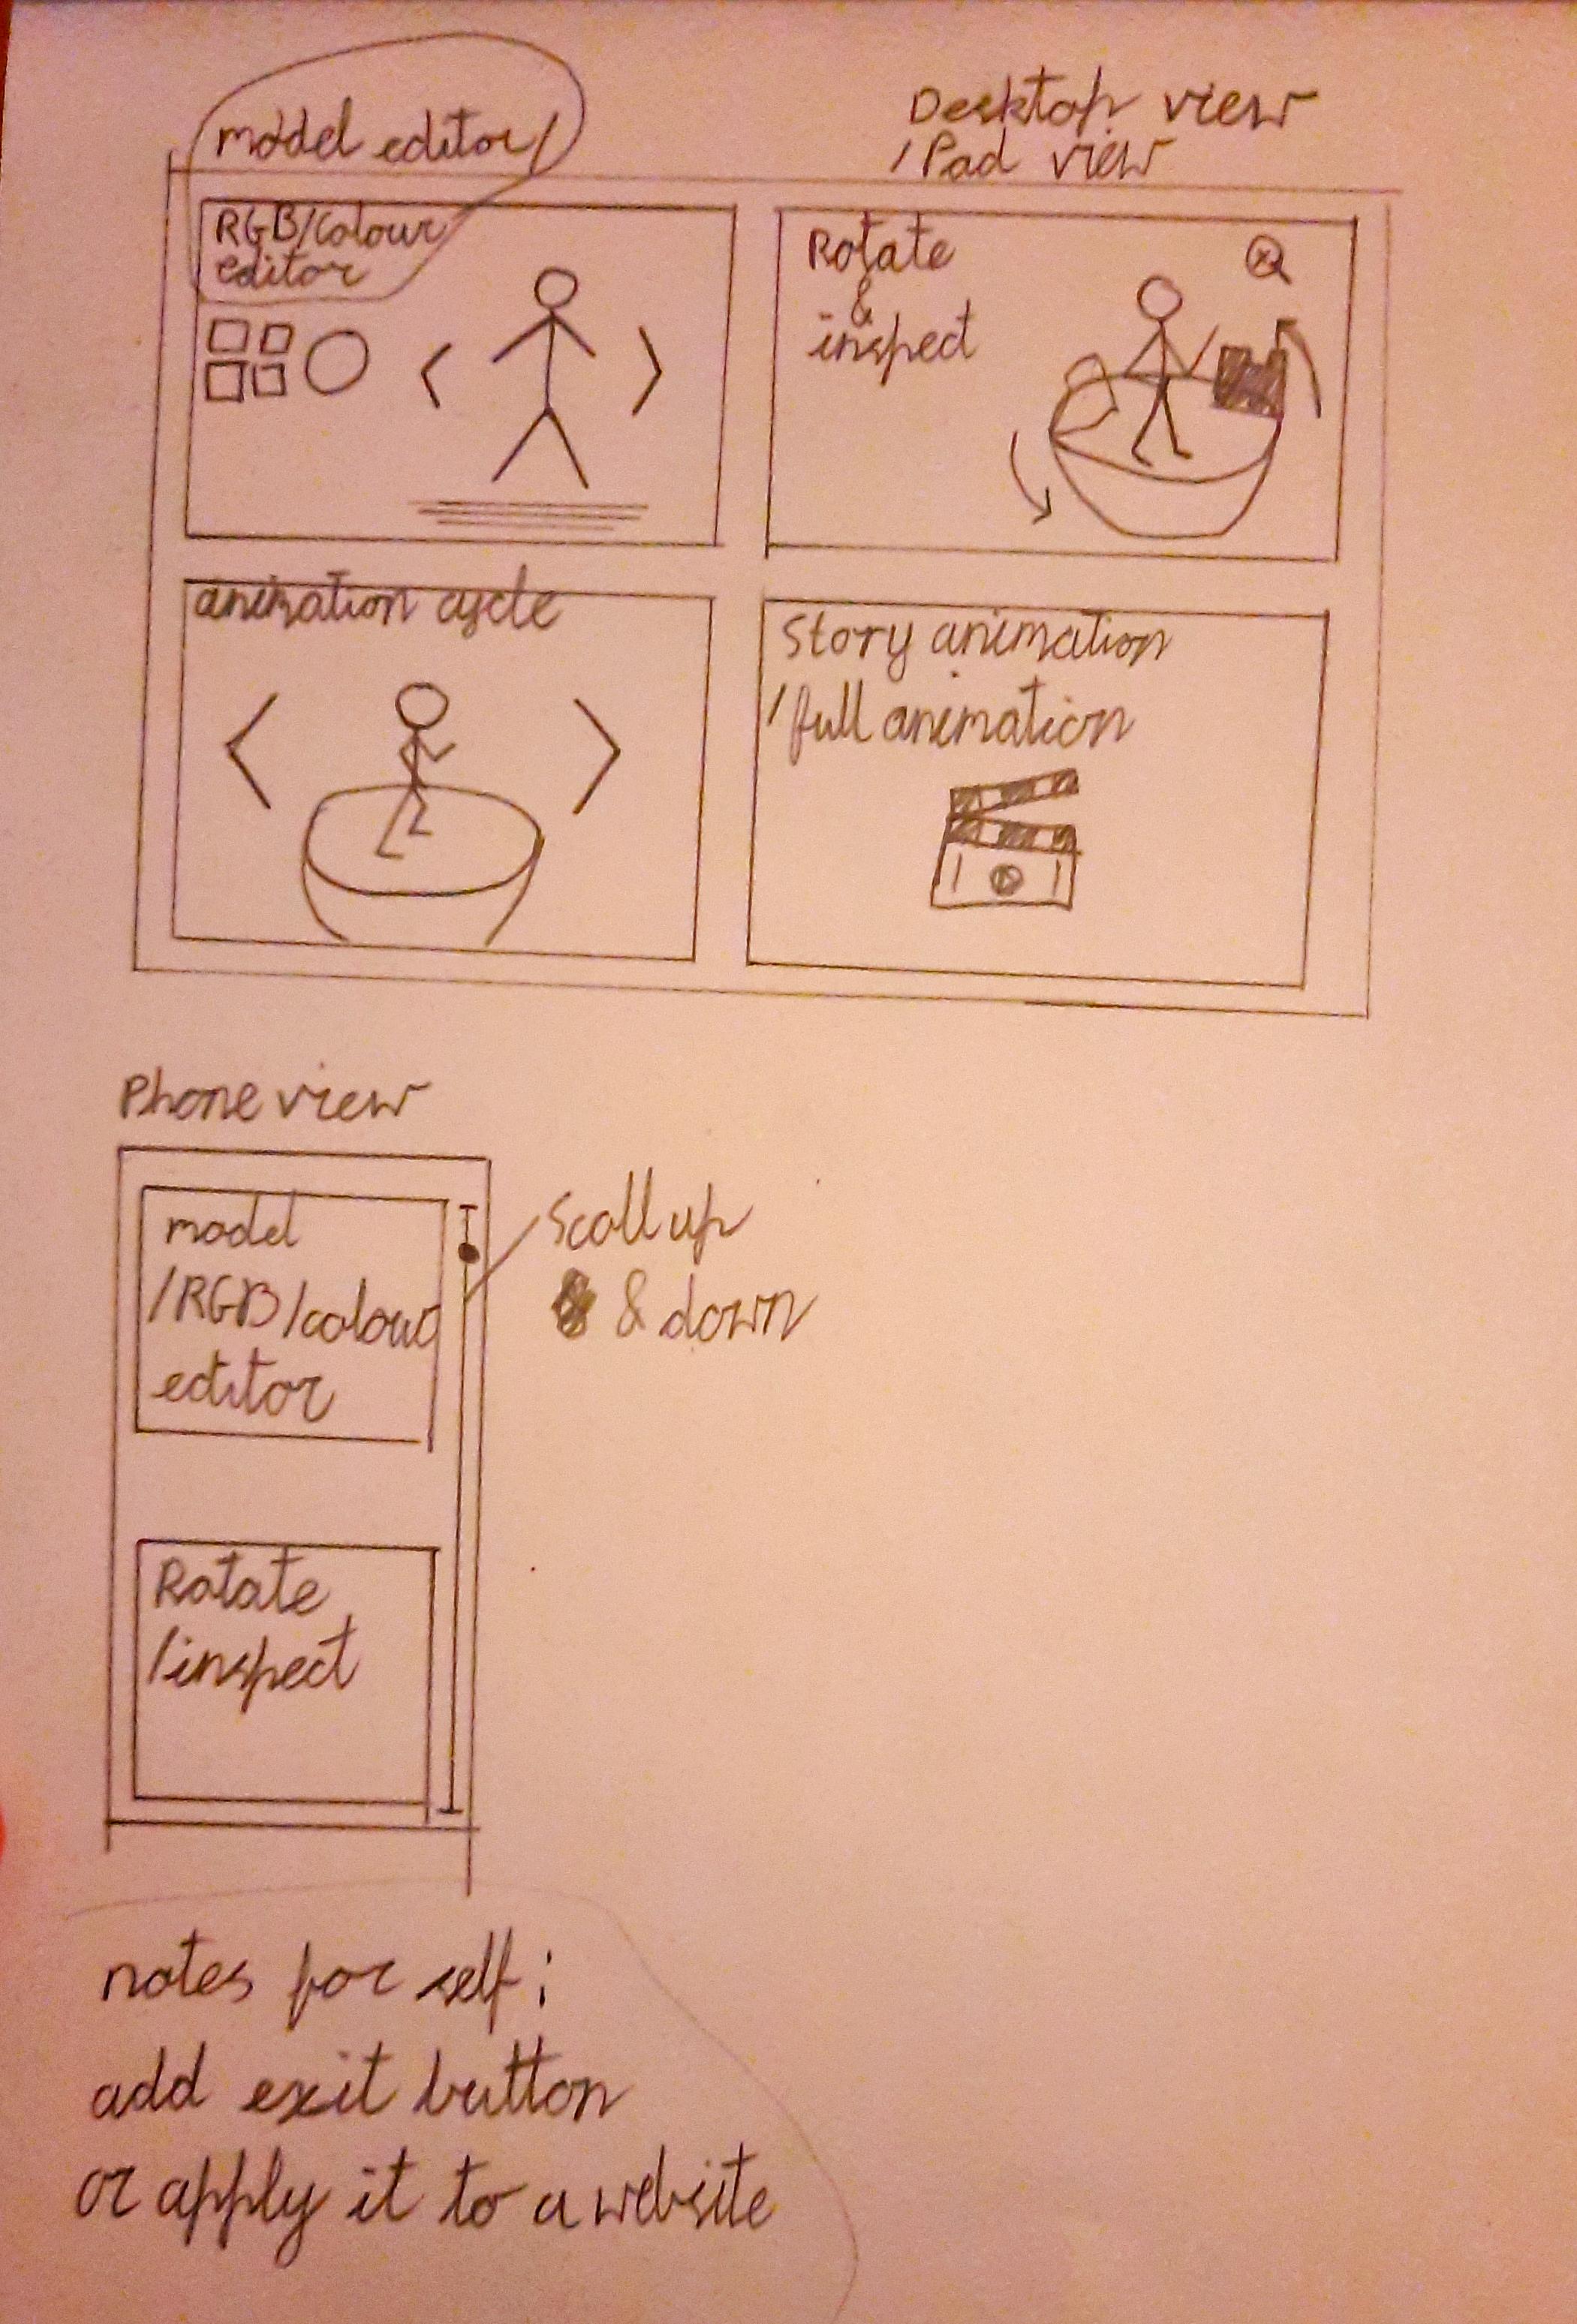 model editor/
Desktop view
/Pad view
RGB/colour
editor
Rotate
&
inspect
animation cycle
Story animation
/full animation
Phone view
model
/RGB/colour
editor
Scoll up
& down
Rotate
/inspect
notes for self:
add exit button
or apply it to a website